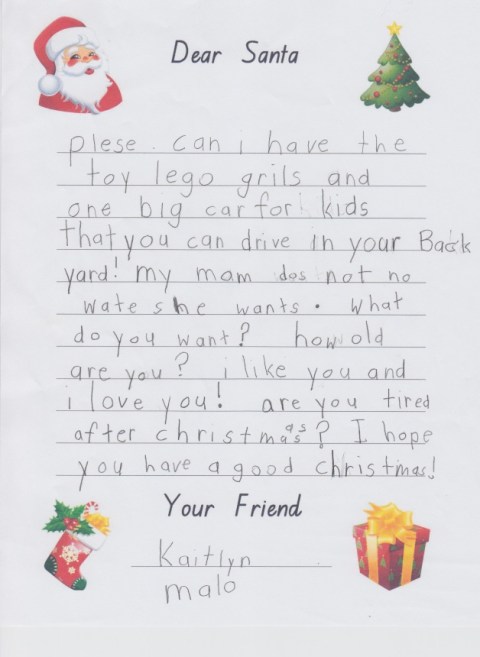 Dear Santa
plese. can i have the
toy lego grils and
one big car for kids
that you can drive in your Back
yard! my mam dos not no
wate she wants. what
do you want? how old
are you? i like you and
i love you! are you tired
after christmas as? I hope
you have a good christmas!
Your Friend
Kaitlyn
malo